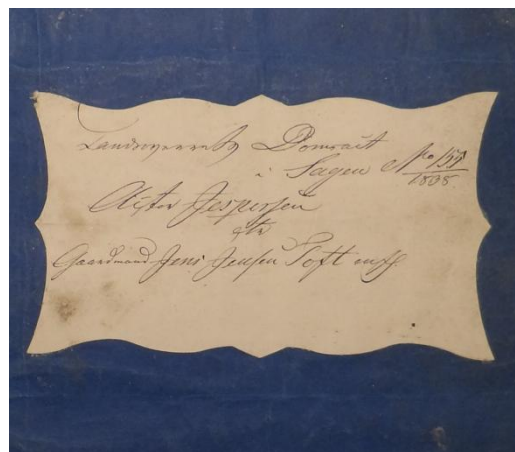 Landsoverrets Domsact
i Sagen No 151/1838.
Actor Jespersen
ctr
Gaardmand Jens Jensen Toft